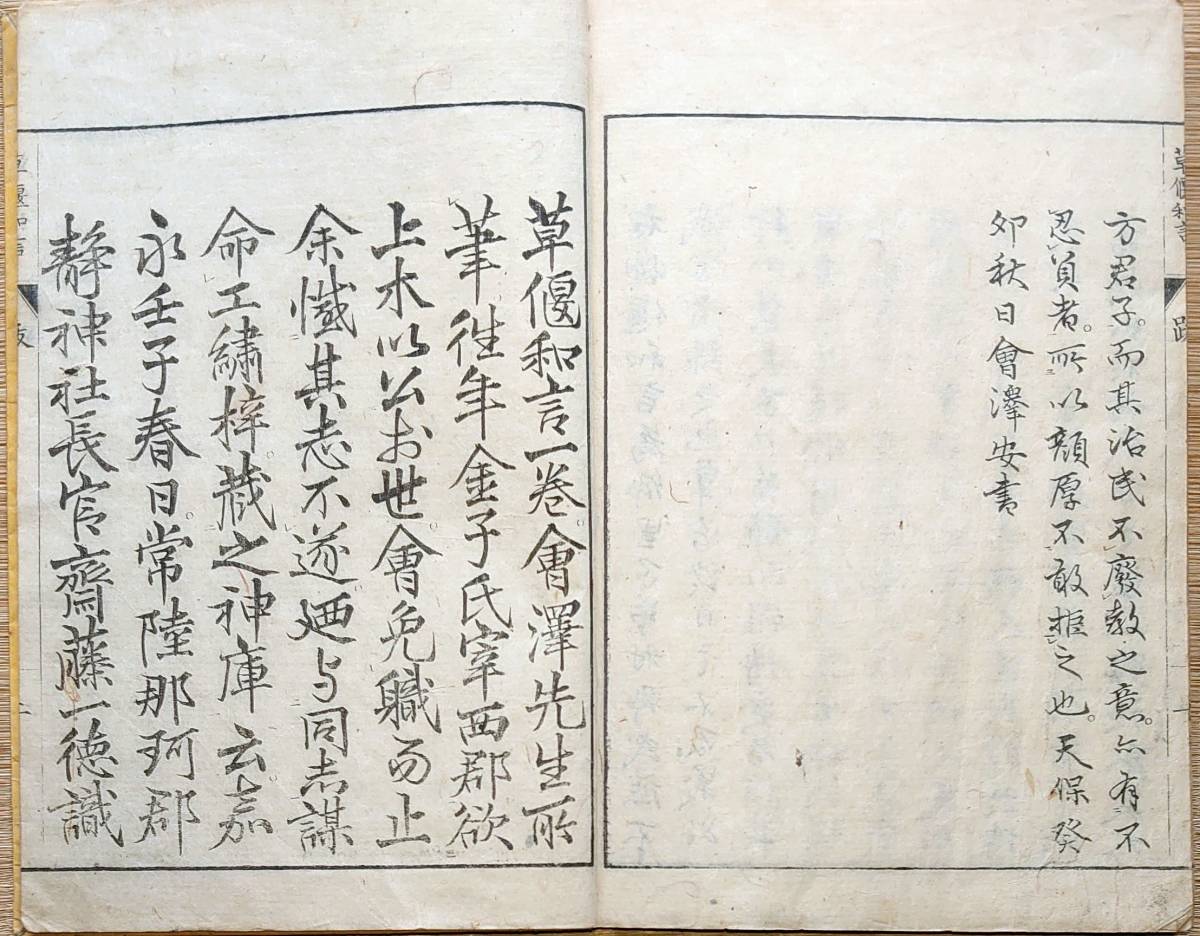 草偃和言
跋
一
方君子。而其治民不廢敎之意。亦有不
忍負者。所以顔厚不敢拒之也。天保癸
卯秋日會澤安書
草偃和言一卷。會澤先生所
著往年金子氏宰西郡欲
上木以公於世。會免職而止
余慨其志不遂廼与同志謀
命工繡梓。藏之神庫云。嘉
永壬子春日。常陸那珂郡
靜神社長官齋藤一德識
草偃和言
跋
二